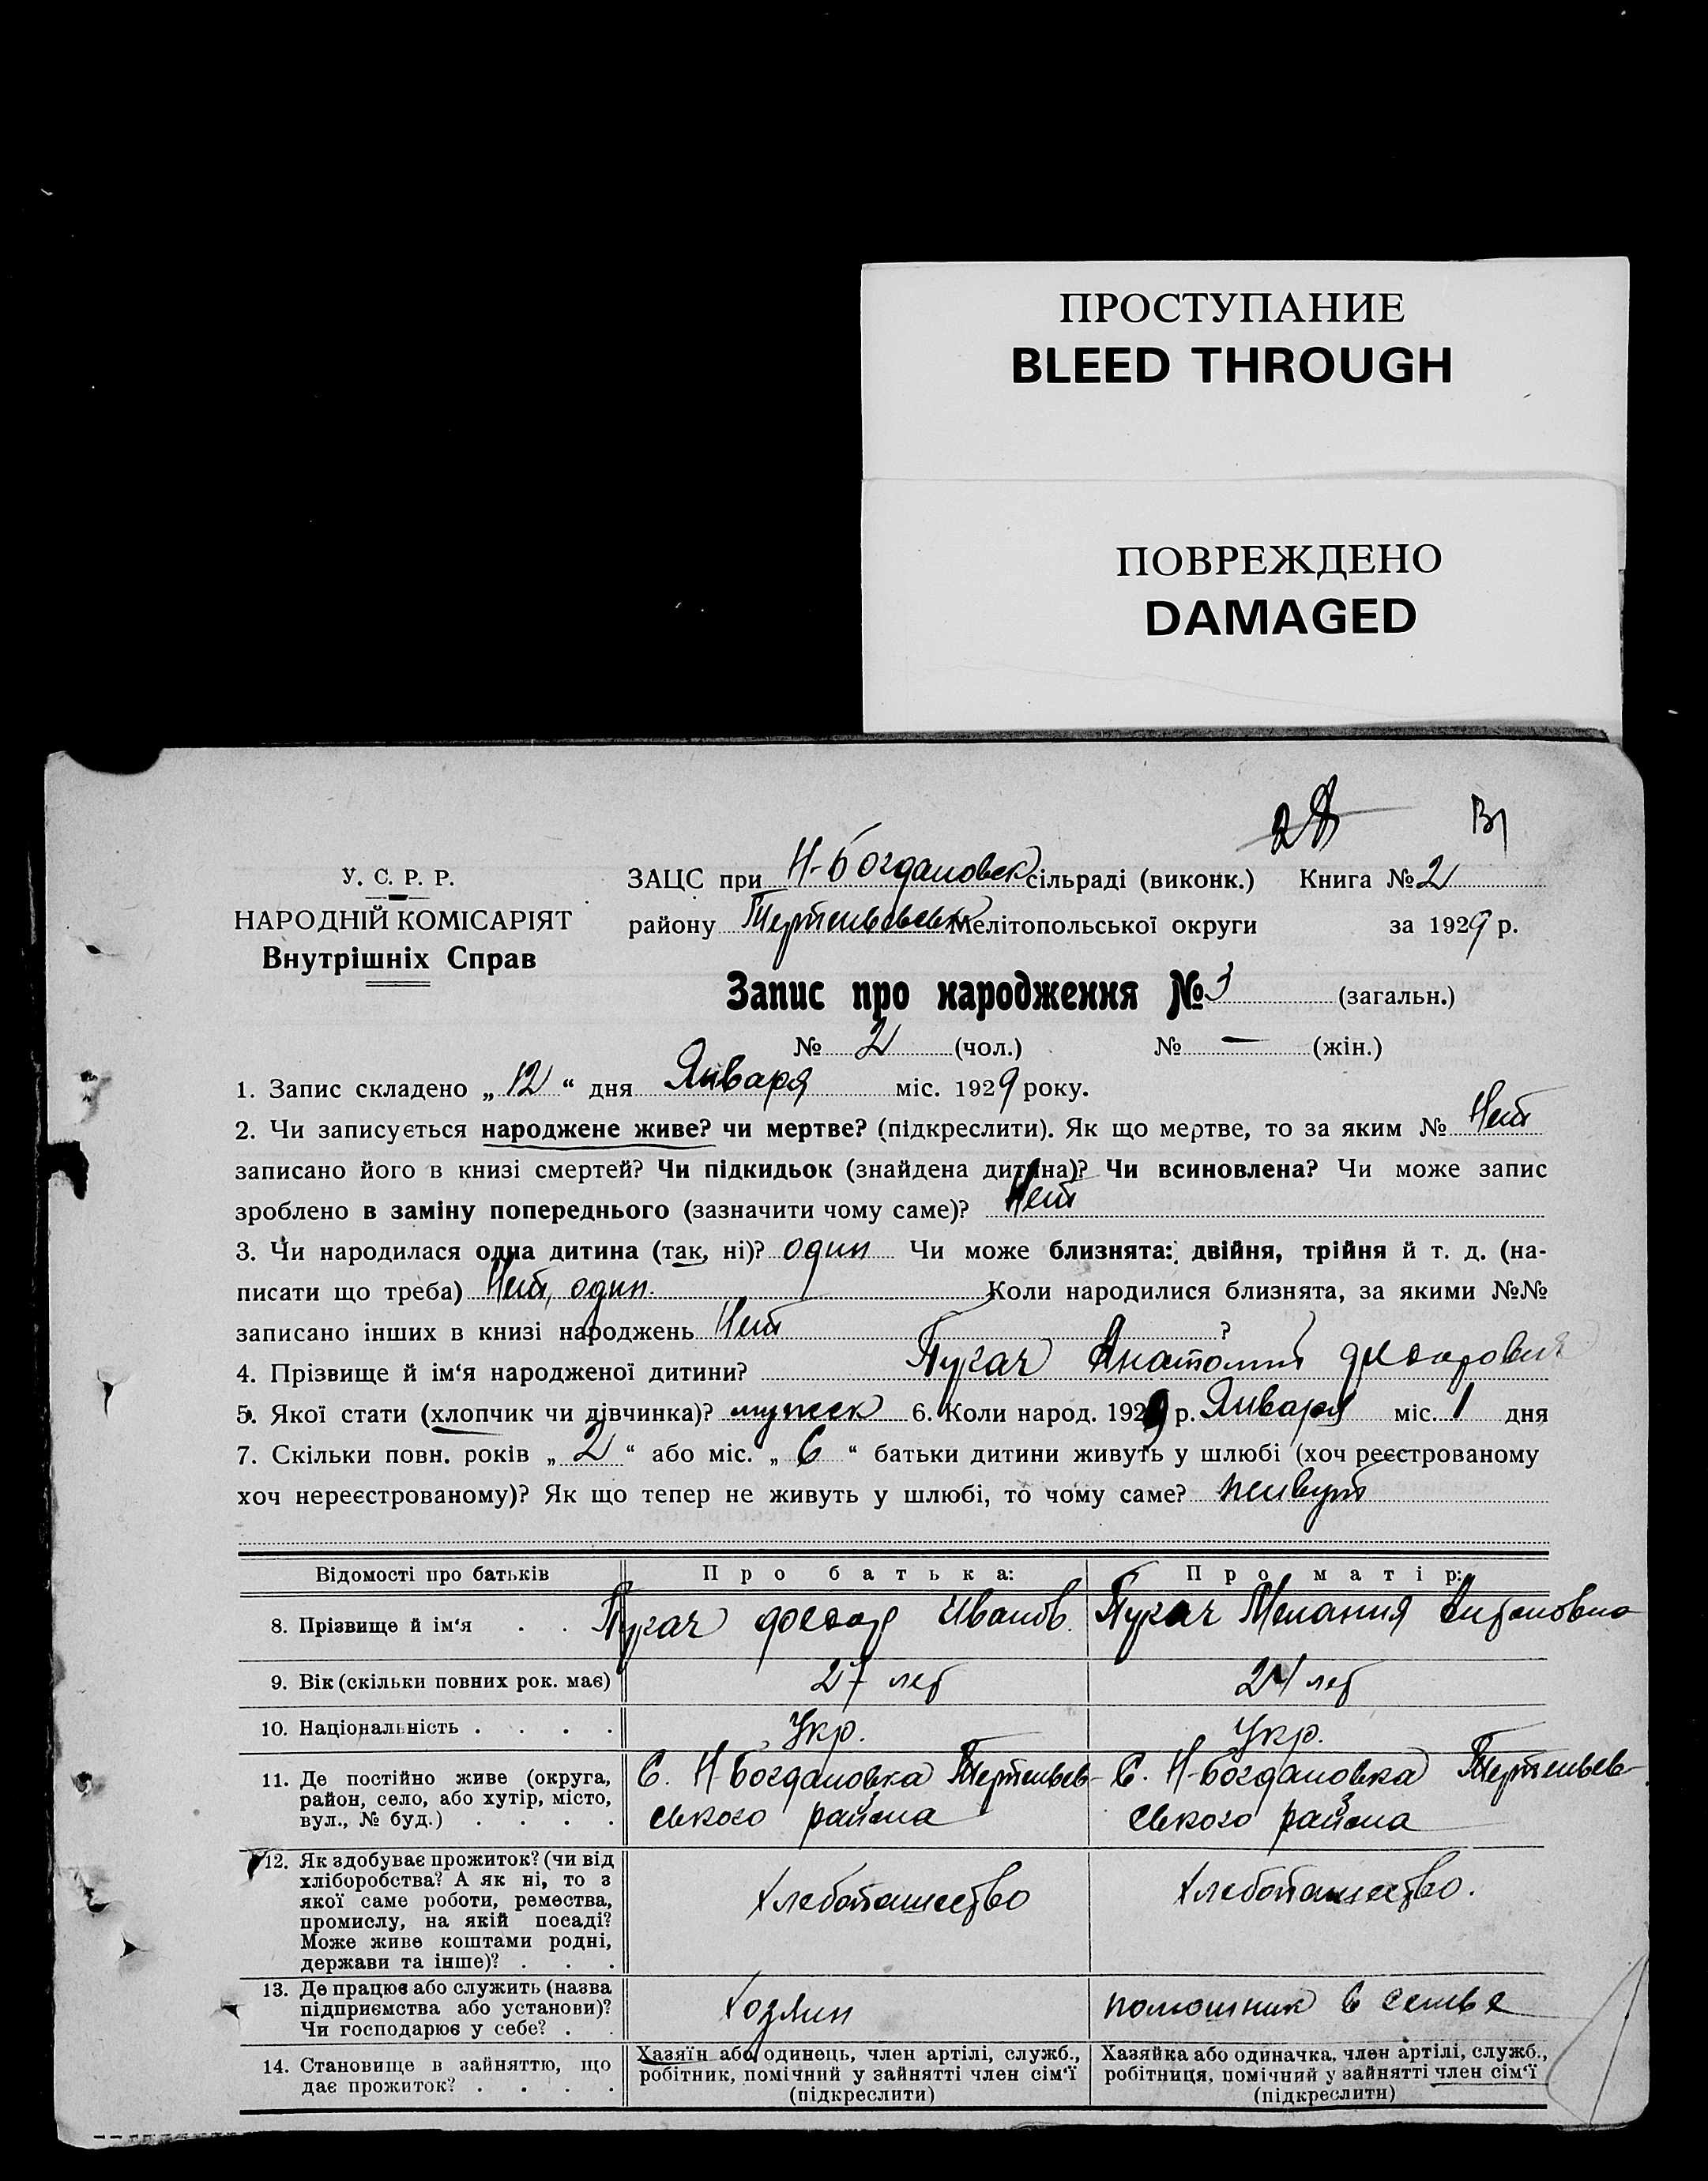 ПРОСТУПАНИЕ
BLEED THROUGH
ПОВРЕЖДЕНО
DAMAGED
У. С. Р. Р.
НАРОДНІЙ КОМІСАРІЯТ
Внутрішніх Справ
ЗАЦС при Н-Богдановск сільраді (виконк.) Книга № 2
району Мелітопольської округи за 1929 р.
Запис про народження № 3 (загальн.)
№ 2 (чол.) № — (жін.)
1. Запис складено „ 12 “ дня Января міс. 1929 року.
2. Чи записується народжене живе? чи мертве? (підкреслити). Як що мертве, то за яким № Нет
записано його в книзі смертей? Чи підкидьок (знайдена дитина)? Чи всиновлена? Чи може запис
зроблено в заміну попереднього (зазначити чому саме)? Нет
3. Чи народилася одна дитина (так, ні)? один Чи може близнята: двійня, трійня й т. д. (на-
писати що треба) Нет, один. Коли народилися близнята, за якими №№
записано інших в книзі народжень Нет ?
4. Прізвище й ім‘я народженої дитини? Пугач Анатолий
5. Якої стати (хлопчик чи дівчинка)? мужск 6. Коли народ. 1929 р. Января міс. 1 дня
7. Скільки повн. років „ 2 “ або міс. „ 6 “ батьки дитини живуть у шлюбі (хоч реєстрованому
хоч нереєстрованому)? Як що тепер не живуть у шлюбі, то чому саме? живут
Відомості про батьків Про батька: Про матір:
8. Прізвище й ім‘я . . Пугач Иванов. Пугач Мелания
9. Вік (скільки повних рок. має) 27 лет 24 лет
10. Національність . . . . Укр. Укр.
11. Де постійно живе (округа, район, село, або хутір, місто, вул., № буд.) . . . .
С. Н-Богдановка Терпеньев-
ського района
С. Н-Богдановка Терпеньев-
ського района
12. Як здобуває прожиток? (чи від
хліборобства? А як ні, то з
якої саме роботи, ремества,
промислу, на якій посаді?
Може живе коштами родні,
держави та інше)? . . .
Хлебопашество
Хлебопашество.
13. Де працює або служить (назва
підприємства або установи)?
Чи господарює у себе? . .
Хозяин
помошник в семье
14. Становище в зайняттю, що
дає прожиток? . . . .
Хазяїн або одинець, член артілі, служб.,
робітник, помічний у зайнятті член сім‘ї
(підкреслити)
Хазяйка або одиначка, член артілі, служб.,
робітниця, помічний у зайнятті член сім‘ї
(підкреслити)